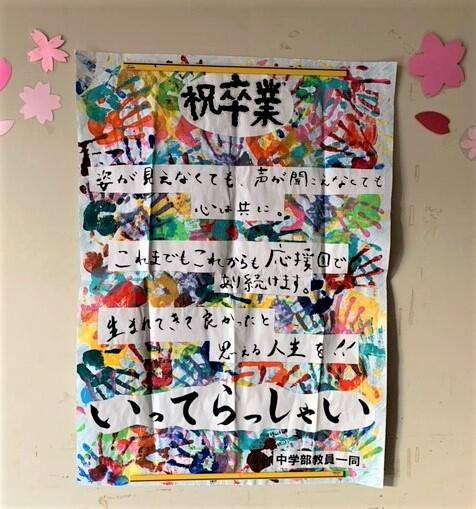 祝卒業
姿が見えなくても、声が聞こえなくても
心は共に。
これまでもこれからも応援団で
あり続けます。
生まれてきて良かったと
思える人生を!!
いってらっしゃい
中学部教員一同